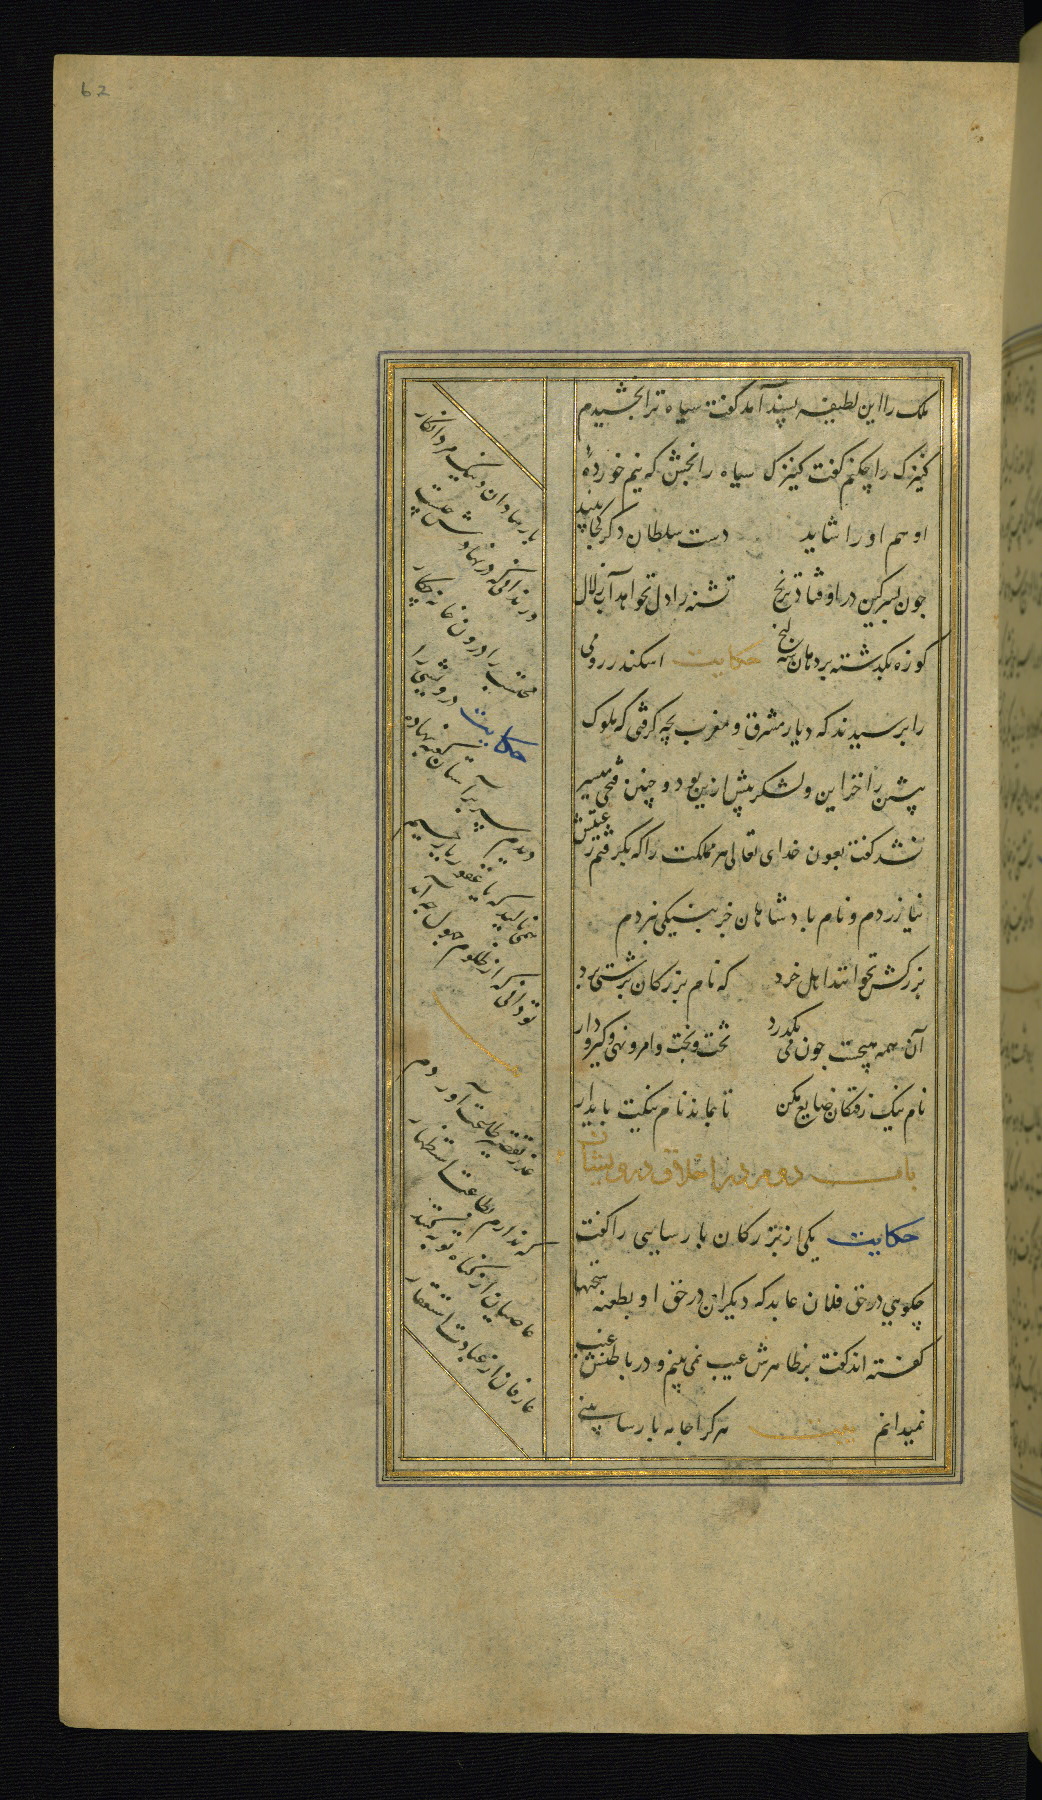 62
ملک را این لطیفه پسند آمد گفت سیاه ترا بخشیدم
کنیزک را چکنم گفت کنیزک سیاه را بخش که نیم خوردهٔ
او هم او را شاید دست سلطان دگر کجا بیند
جون بسرکین در اوفتاد ترنج تشنه را دل نخواهد آب زلال
کوزه بگذشته بر دهان سکنج حکایت اسکندر رومی
را پرسیدند که دیار مشرق و مغرب بچه گرفتی که ملوک
پیشین را خزاین و لشکر بیش ازین بود و چنین فتحی میسر
نشد گفت بعون خدای تعالی هر مملکت را که بگرفتم رعیتش
نیازردم و نام بادشاهان جز بنیکی نبردم
بزرکش نخوانند اهل خرد که نام بزرکان بزشتی برد
آن همه هیچست جون می بگذرد تخت و بخت و امر و نهی و گیر و دار
نام نیک رفتکان ضایع مکن تا بماند نام نیکیت پایدار
باب دوم در اخلاق درویشان
حکایت یکی از بزرکان پارسایی را گفت
چکویی در حق فلان عابد که دیکران در حق او بطعنه سخنها
گفته اند گفت بر ظاهرش عیب نمی بینم و در باطنش غیب
نمیدانم بیت هر کرا جامه پارسا بینی
پارسا دان و نیک مرد انکار
ور ندانی که در نهادش چیست
محتسب را درون خانه چکار
حکایت درویشی را
دیدم سر بر آستان کعبه نهاده
همی نالید که یا غفور یا رحیم
تو دانی که از ظلوم جهول چه آید
عذر تقصیر خدمت آوردم
که ندارم بطاعت استظهار
عاصیان از گناه توبه کنند
عارفان از عبادت استغفار